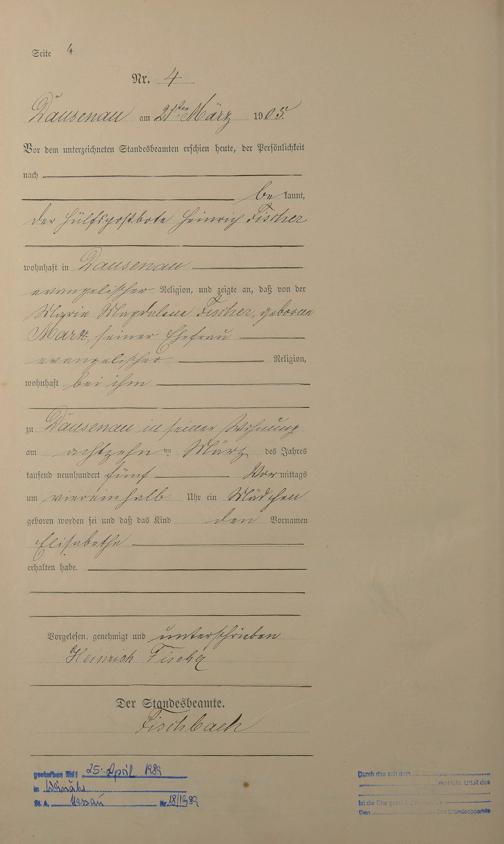 Seite 4
Nr. 4
Dausenau am 21ten März 1905.
Vor dem unterzeichneten Standesbeamten erschien heute, der Persönlichkeit
nach
be kannt,
der Hülfspostbote Heinrich Fischer
wohnhaft in Dausenau
evangelischer Religion, und zeigte an, daß von der
Maria Magdalena Fischer, geborene
seiner Ehefrau
evangelischer Religion,
wohnhaft bei ihm
zu Dausenau in seiner Wohnung
am achtzehn ten März des Jahres
tausend neunhundert fünf Vormittags
um viereinhalb Uhr ein Mädchen
geboren worden sei und daß das Kind den Vornamen
Elisabethe
erhalten habe.
Vorgelesen, genehmigt und unterschrieben
Heinrich Fischer
Der Standesbeamte.
Fischbach
gestorben am: 25. April 1989
in
St. A. Nassau Nr. 18/1989
Durch das seit dem